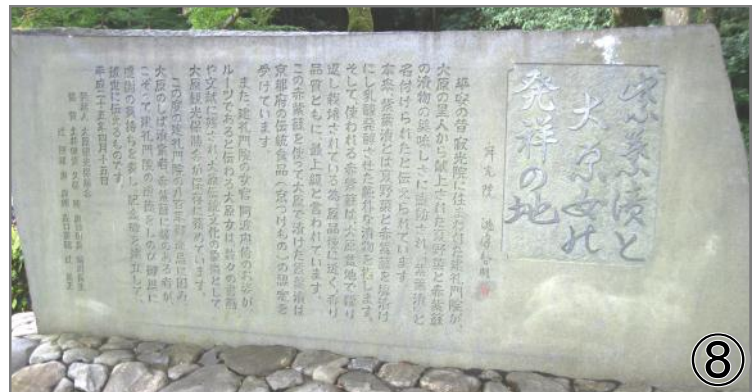 紫葉漬と
大原女の
発祥の地
平安の昔寂光院に住まわれた建礼門院が、
大原の里人から献上された夏野菜と赤紫蘇
の漬物の美味しさに感動され「紫葉漬」と
名付けられたと伝えられています。
本来、紫葉漬とは夏野菜と赤紫蘇を塩漬け
にし乳酸発酵させた酸味な漬物を指します。
そして、使われる赤紫蘇は大原盆地で繰り
返し栽培されている為、原品種に近く、香り
品質ともに、最上級と言われています。
この赤紫蘇を使って大原で漬けた紫葉漬は
京都府の伝統食品(京つけもの)の認定を
受けています。
また、建礼門院の女官、阿波内侍のお姿が、
ルーツであると伝わる大原女は、数々の
や文献に残され、大原伝統文化の象徴として
大原観光保勝会が伝承に努めています。
この度の建礼門院の八百年御遠忌に因み、
大原のしば漬業者、赤紫蘇に縁のある者が、
こぞって建礼門院の遺徳をしのび御恩に
感謝の気持ちを表し、記念碑を建立して、
後世に伝えるものです。
平成二十五年四月十五日
大原観光保勝会